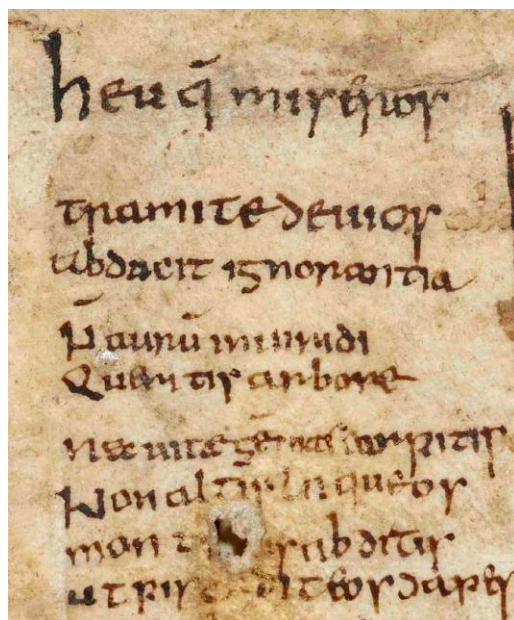 heu q̄ mis̄ros
tramite deuios
abducit ignorantia
N̄ aurū inuiridi
Queritis arbore
nec uite carpitis
Non altis laqueos
abditis
ut dapes